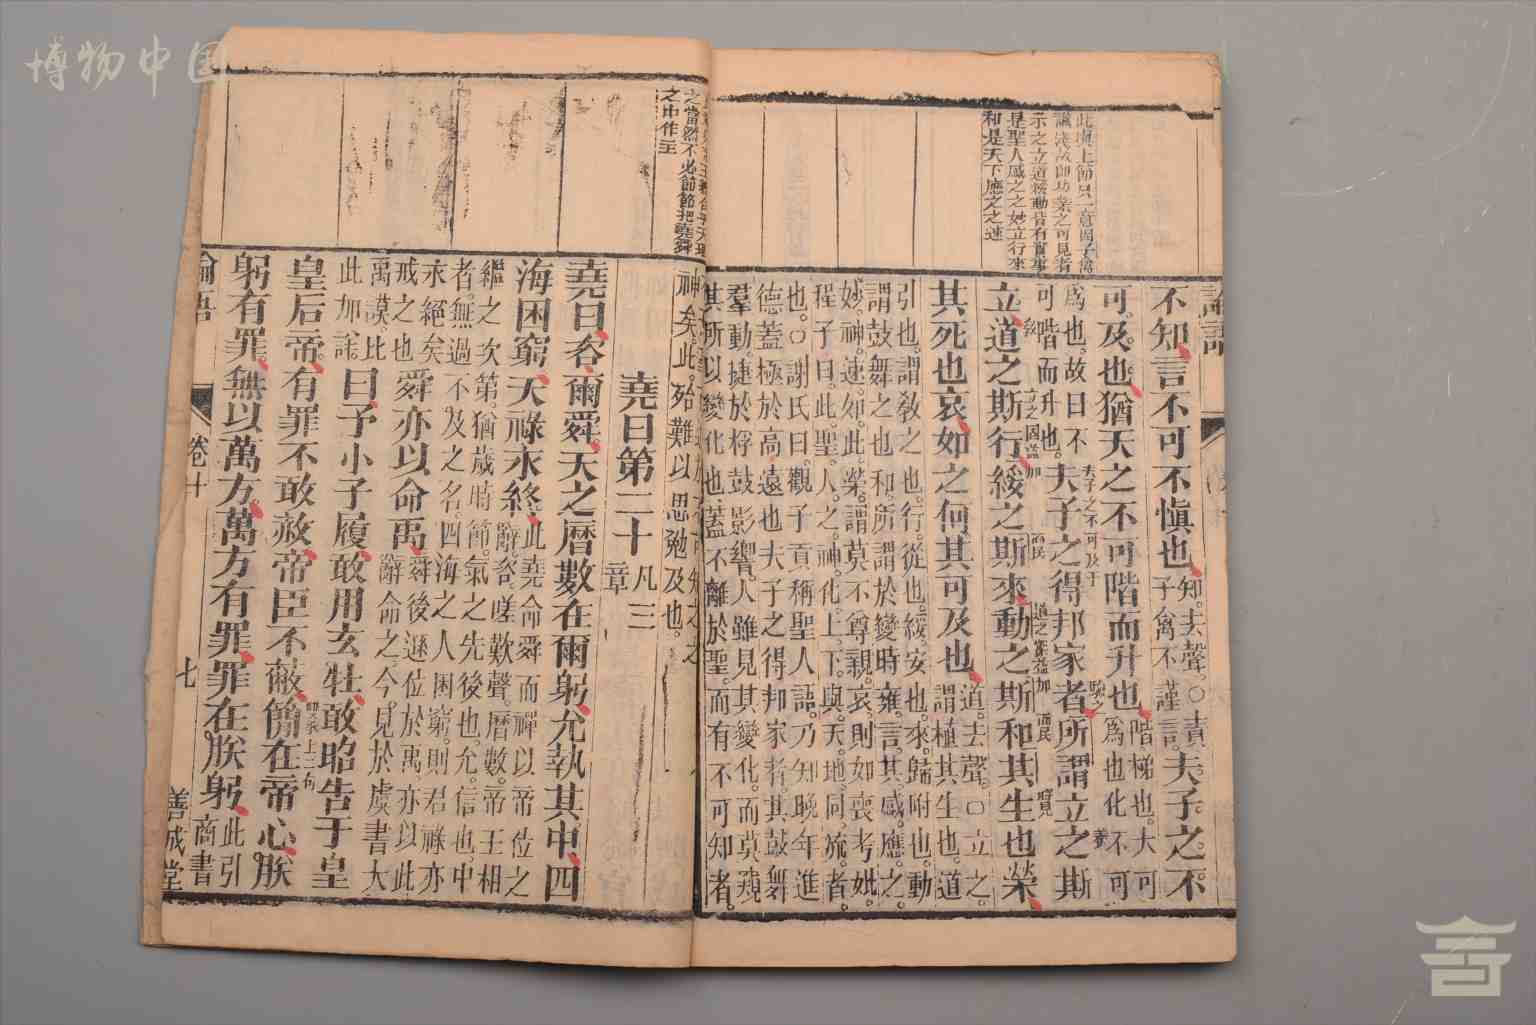 此與上節只一意因子禽
識淺故即功業之可見者
示之立道綏動皆有實事
是聖人感之之妙立行來
和是天下應之之速
論語
不知言不可不慎也知去聲。○責子禽不謹言。夫子之不
可及也猶天之不可階而升也階梯也。大可
為也。化不可
為也。故曰不
可階而升也。夫子之得邦家者所謂立之斯
立道之斯行綏之斯來動之斯和其生也榮
其死也哀如之何其可及也道。去聲。○立之。
謂植其生也。道
引也。謂教之也。行。從也。綏。安也。來。歸附也。動
謂鼓舞之也。和。所謂於變時雍。言其感應之
妙。神速如此。榮。謂莫不尊親。哀。則如喪考妣。
程子曰。此聖人之神化。上下與天地同流者
也。○謝氏曰。觀子貢稱聖人語。乃知晚年進
德。蓋極於高遠也。夫子之得邦家者。其鼓舞
羣動。捷於桴鼓影響。人雖見其變化。而莫窺
其所以變化也。蓋不離於聖。而有不可知者。
之當然不必節節把堯舜
之中作主
神矣。此殆難以思勉及也。
堯曰第二十凡三章
堯曰咨爾舜天之曆數在爾躬允執其中四
海困窮天祿永終此堯命舜而禪以帝位之
辭。咨。嗟歎聲。曆數。帝王相
繼之次第。猶歲時節氣之先後也。允。信也。中
者。無過不及之名。四海之人困窮。則君祿亦
永絕矣。
戒之也舜亦以命禹舜後遜位於禹。亦以此
辭命之。今見於虞書大
禹謨。比
此加詳曰予小子履敢用玄牡敢昭告于皇
皇后帝有罪不敢赦帝臣不蔽簡在帝心朕
躬有罪無以萬方萬方有罪罪在朕躬此引
商書
論語
卷十
七
善成堂
博物中国